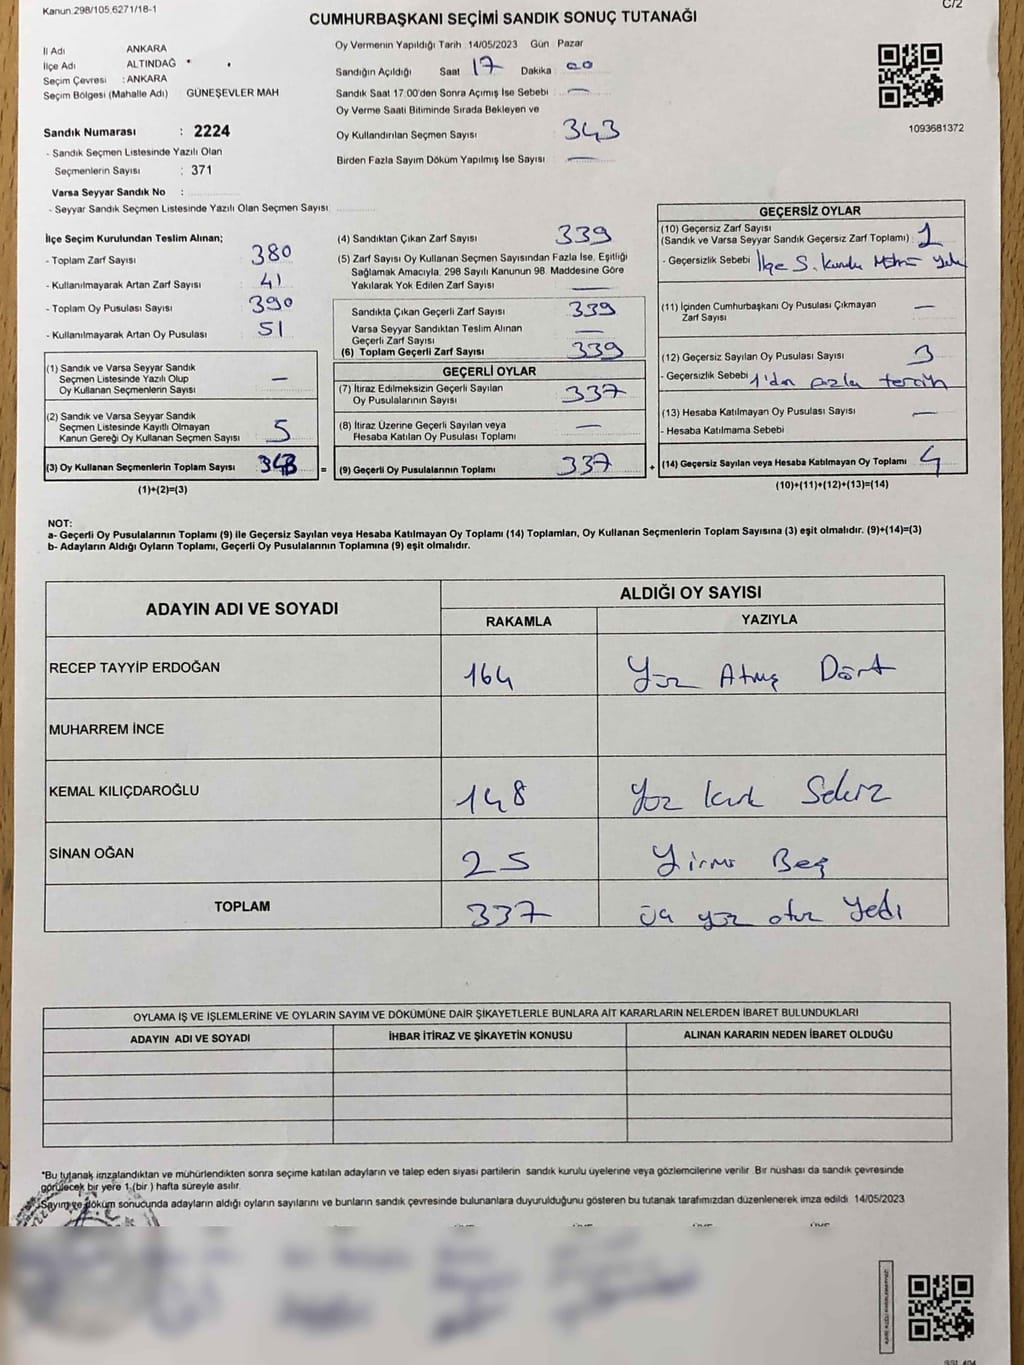 Kanun.298/105.6271/18-1
C/2
CUMHURBAŞKANI SEÇİMİ SANDIK SONUÇ TUTANAĞI
İl Adı ANKARA
İlçe Adı ALTINDAĞ
Seçim Çevresi : ANKARA
Seçim Bölgesi (Mahalle Adı) GÜNEŞEVLER MAH
Sandık Numarası : 2224
- Sandık Seçmen Listesinde Yazılı Olan
Seçmenlerin Sayısı : 371
Varsa Seyyar Sandık No :
- Seyyar Sandık Seçmen Listesinde Yazılı Olan Seçmen Sayısı
Oy Vermenin Yapıldığı Tarih 14/05/2023 Gün Pazar
Sandığın Açıldığı Saat 17 Dakika 00
Sandık Saat 17:00'den Sonra Açımış İse Sebebi —
Oy Verme Saati Bitiminde Sırada Bekleyen ve
Oy Kullandırılan Seçmen Sayısı 343
Birden Fazla Sayım Döküm Yapılmış İse Sayısı —
1093681372
İlçe Seçim Kurulundan Teslim Alınan;
- Toplam Zarf Sayısı 380
- Kullanılmayarak Artan Zarf Sayısı 41
- Toplam Oy Pusulası Sayısı 390
- Kullanılmayarak Artan Oy Pusulası 51
(1) Sandık ve Varsa Seyyar Sandık
Seçmen Listesinde Yazılı Olup
Oy Kullanan Seçmenlerin Sayısı —
(2) Sandık ve Varsa Seyyar Sandık
Seçmen Listesinde Kayıtlı Olmayan
Kanun Gereği Oy Kullanan Seçmen Sayısı 5
(3) Oy Kullanan Seçmenlerin Toplam Sayısı 343 =
(1)+(2)=(3)
(4) Sandıktan Çıkan Zarf Sayısı 339
(5) Zarf Sayısı Oy Kullanan Seçmen Sayısından Fazla İse, Eşitliği
Sağlamak Amacıyla, 298 Sayılı Kanunun 98. Maddesine Göre
Yakılarak Yok Edilen Zarf Sayısı —
Sandıkta Çıkan Geçerli Zarf Sayısı 339
Varsa Seyyar Sandıktan Teslim Alınan
Geçerli Zarf Sayısı —
(6) Toplam Geçerli Zarf Sayısı 339
GEÇERLİ OYLAR
(7) İtiraz Edilmeksizin Geçerli Sayılan
Oy Pusulalarının Sayısı 337
(8) İtiraz Üzerine Geçerli Sayılan veya
Hesaba Katılan Oy Pusulası Toplamı —
(9) Geçerli Oy Pusulalarının Toplamı 337 +
GEÇERSİZ OYLAR
(10) Geçersiz Zarf Sayısı
(Sandık ve Varsa Seyyar Sandık Geçersiz Zarf Toplamı) : 1
- Geçersizlik Sebebi İlçe S. Kurulu Mührü Yok
(11) İçinden Cumhurbaşkanı Oy Pusulası Çıkmayan
Zarf Sayısı —
(12) Geçersiz Sayılan Oy Pusulası Sayısı 3
- Geçersizlik Sebebi 1'den fazla tercih
(13) Hesaba Katılmayan Oy Pusulası Sayısı —
- Hesaba Katılmama Sebebi
(14) Geçersiz Sayılan veya Hesaba Katılmayan Oy Toplamı 4
(10)+(11)+(12)+(13)=(14)
NOT:
a- Geçerli Oy Pusulalarının Toplamı (9) ile Geçersiz Sayılan veya Hesaba Katılmayan Oy Toplamı (14) Toplamları, Oy Kullanan Seçmenlerin Toplam Sayısına (3) eşit olmalıdır. (9)+(14)=(3)
b- Adayların Aldığı Oyların Toplamı, Geçerli Oy Pusulalarının Toplamına (9) eşit olmalıdır.
ADAYIN ADI VE SOYADI
ALDIĞI OY SAYISI
RAKAMLA YAZIYLA
RECEP TAYYİP ERDOĞAN 164 Yüz Atmış Dört
MUHARREM İNCE
KEMAL KILIÇDAROĞLU 148 Yüz kırk Sekiz
SİNAN OĞAN 25 Yirmi Beş
TOPLAM 337 üç yüz otuz Yedi
OYLAMA İŞ VE İŞLEMLERİNE VE OYLARIN SAYIM VE DÖKÜMÜNE DAİR ŞİKAYETLERLE BUNLARA AİT KARARLARIN NELERDEN İBARET BULUNDUKLARI
ADAYIN ADI VE SOYADI İHBAR İTİRAZ VE ŞİKAYETİN KONUSU ALINAN KARARIN NEDEN İBARET OLDUĞU
*Bu tutanak imzalandıktan ve mühürlendikten sonra seçime katılan adayların ve talep eden siyasi partilerin sandık kurulu üyelerine veya gözlemcilerine verilir. Bir nüshası da sandık çevresinde
görülecek bir yere 1 (bir) hafta süreyle asılır.
Sayım ve döküm sonucunda adayların aldığı oyların sayılarını ve bunların sandık çevresinde bulunanlara duyurulduğunu gösteren bu tutanak tarafımızdan düzenlenerek imza edildi. 14/05/2023